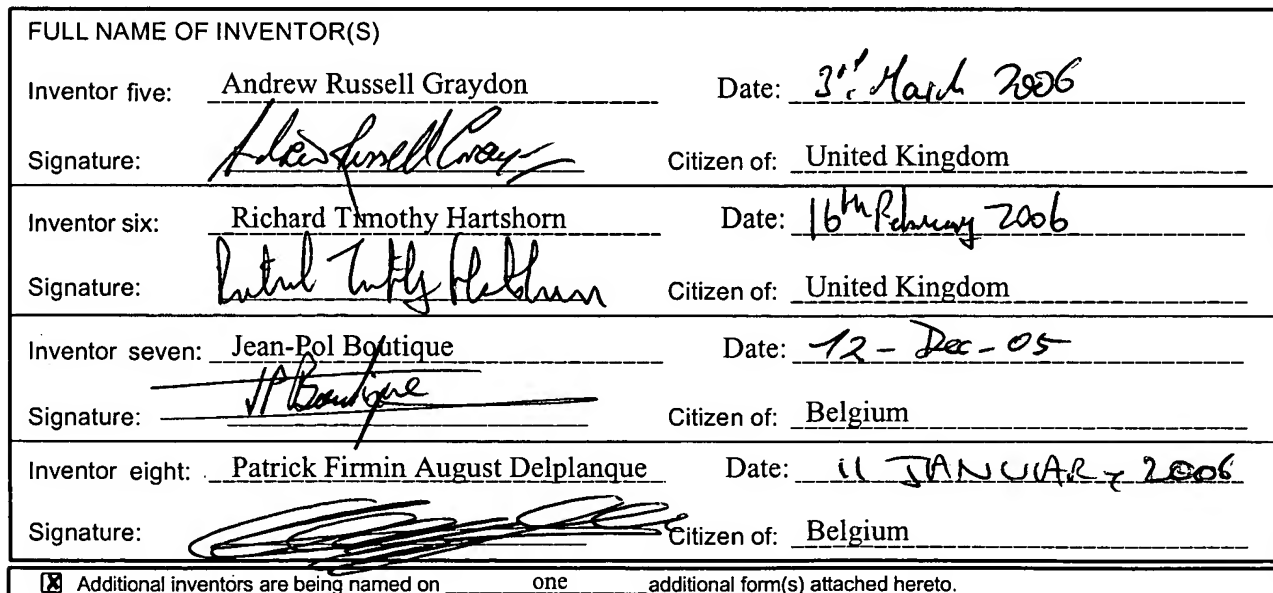 FULL NAME OF INVENTOR(S)
Inventor five: Andrew Russell Graydon Date: 3rd March 2006
Signature: Citizen of: United Kingdom
Inventor six: Richard Timothy Hartshorn Date: 16th February 2006
Signature: Citizen of: United Kingdom
Inventor seven: Jean-Pol Boutique Date: 12 - Dec - 05
Signature: JP Boutique Citizen of: Belgium
Inventor eight: Patrick Firmin August Delplanque Date: 11 JANUARY 2006
Signature: Citizen of: Belgium
☒ Additional inventors are being named on one additional form(s) attached hereto.